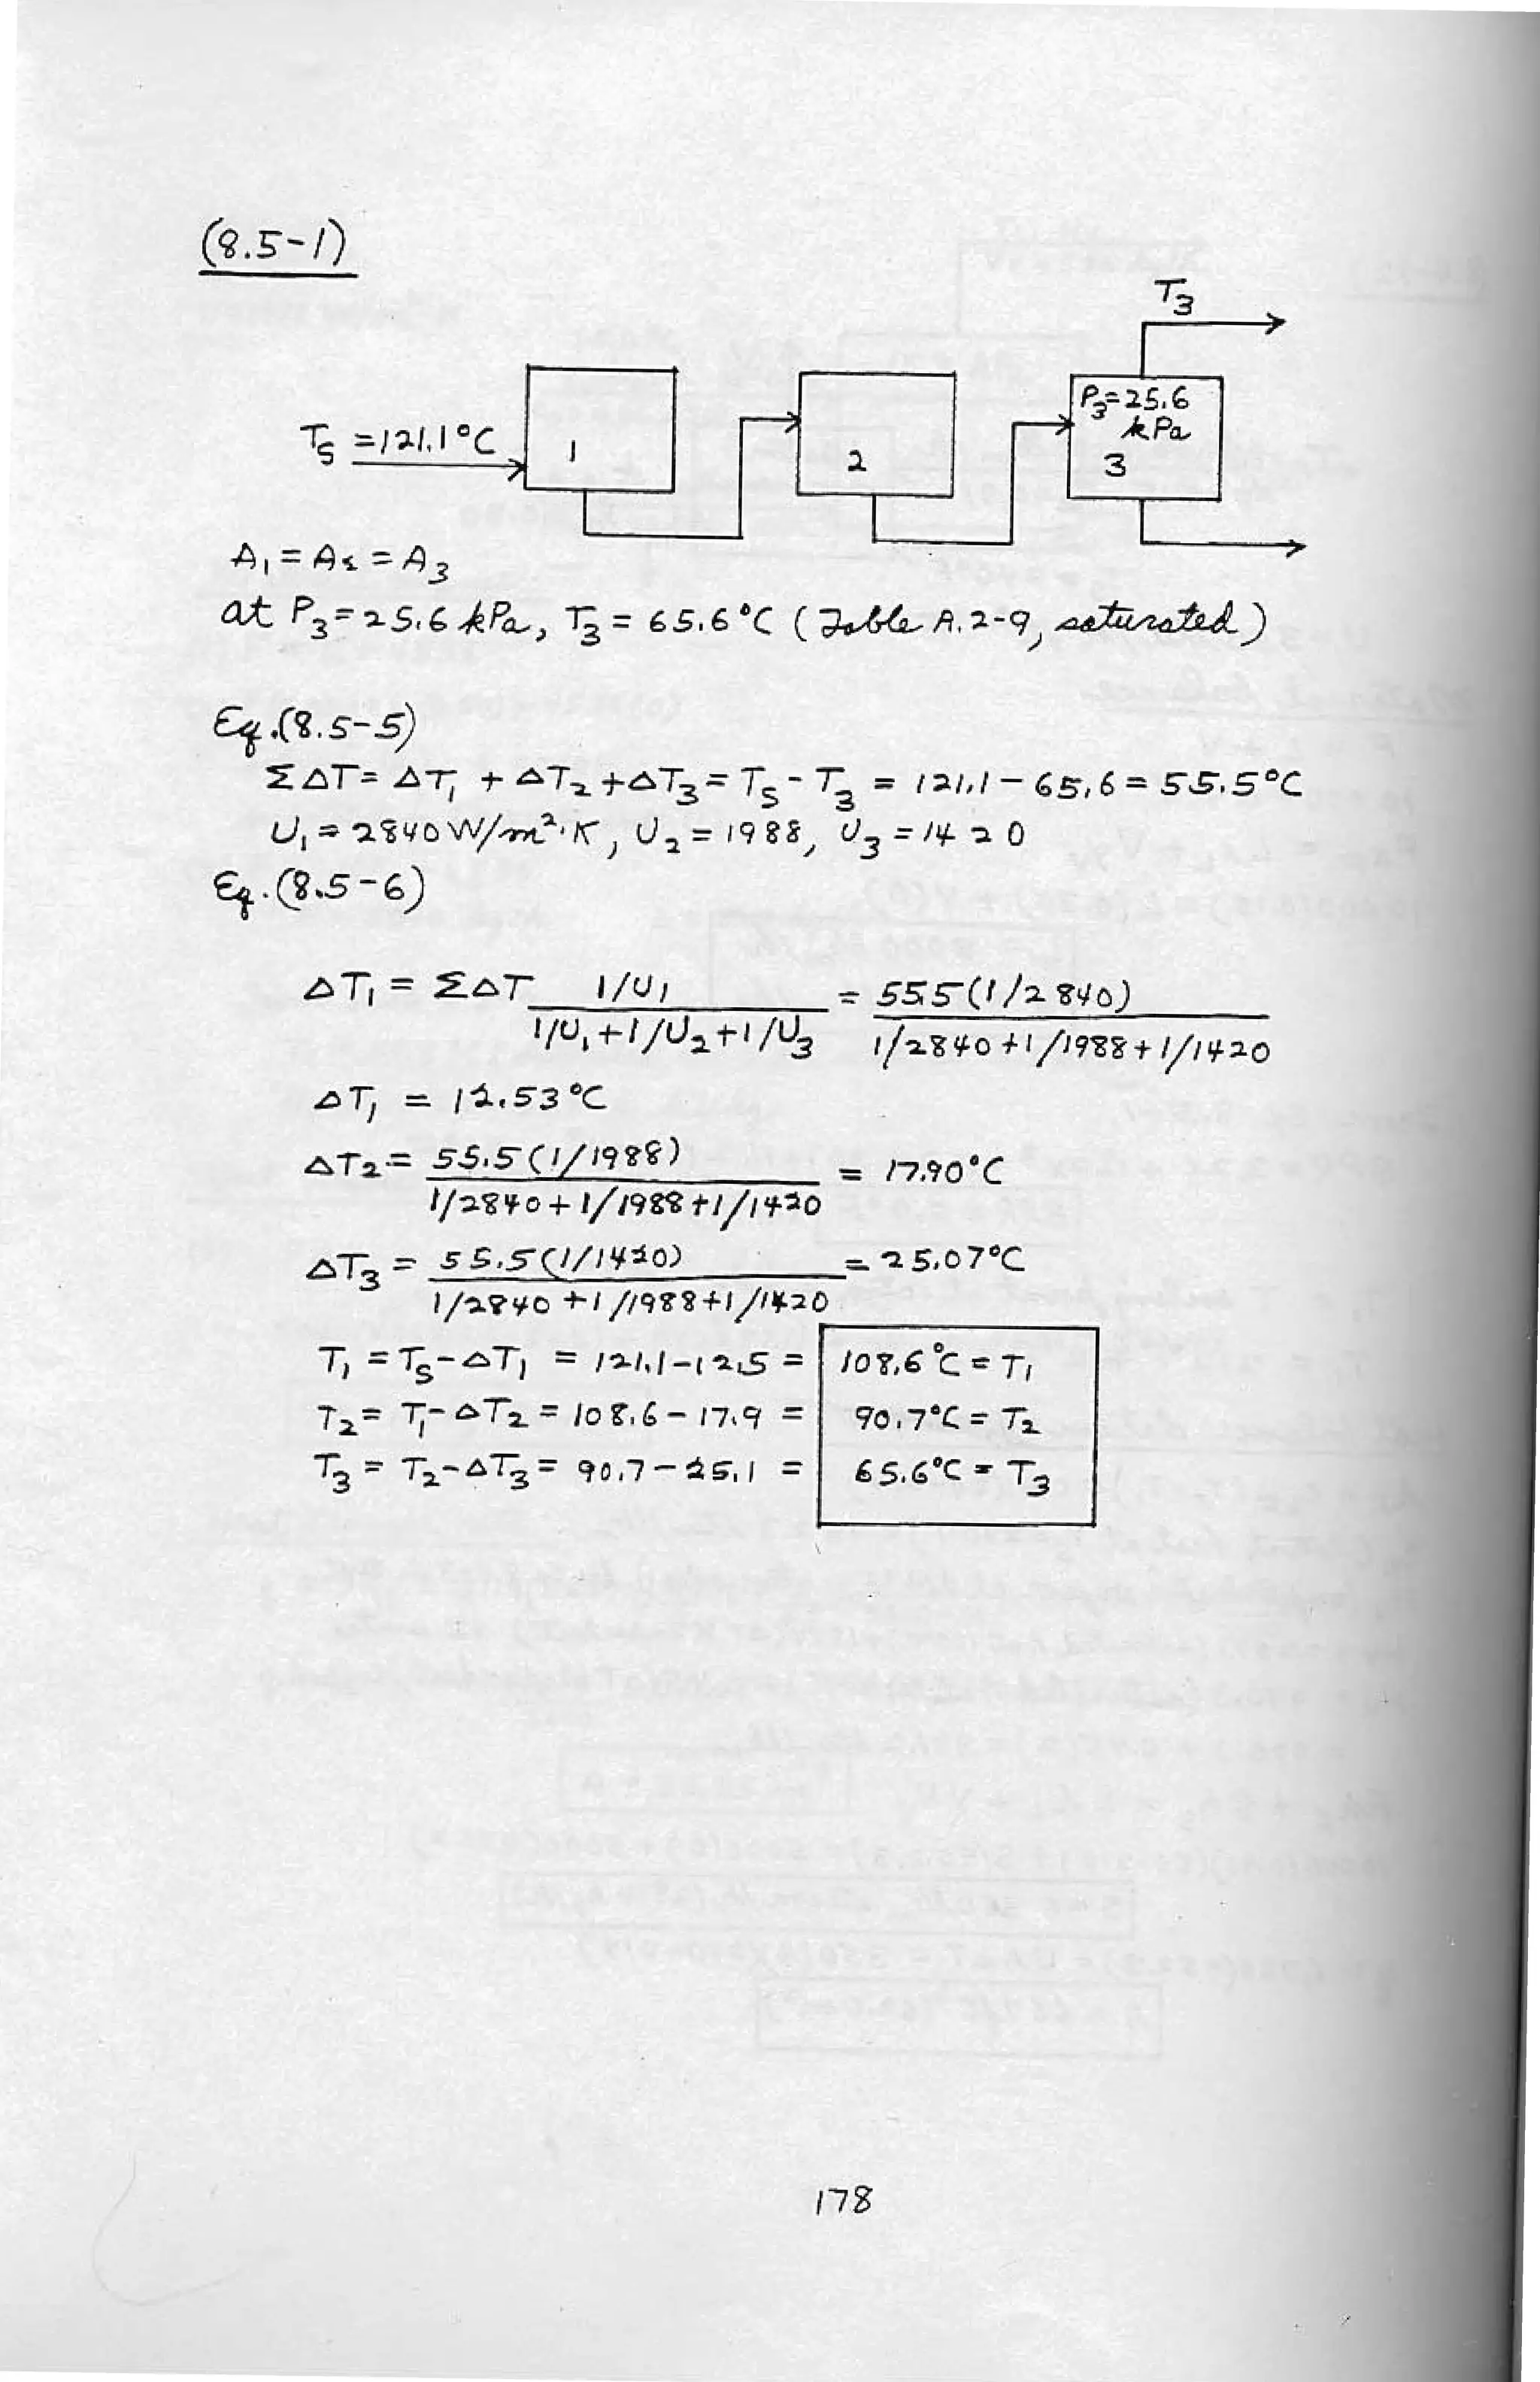 (8.5-1)
T3
Ts = 121.1°C
1
2
P3=25.6
kPa
3
A1 = A2 = A3
at P3 = 25.6 kPa, T3 = 65.6°C (Table A.2-9, saturated)
Eq.(8.5-5)
ΣΔT = ΔT1 + ΔT2 + ΔT3 = Ts - T3 = 121.1 - 65.6 = 55.5°C
U1 = 2840 W/m²·K, U2 = 1988, U3 = 1420
Eq.(8.5-6)
ΔT1 = ΣΔT 1/U1 = 55.5(1/2840)
1/U1 + 1/U2 + 1/U3 1/2840 + 1/1988 + 1/1420
ΔT1 = 12.53°C
ΔT2 = 55.5(1/1988) = 17.90°C
1/2840 + 1/1988 + 1/1420
ΔT3 = 55.5(1/1420) = 25.07°C
1/2840 + 1/1988 + 1/1420
T1 = Ts - ΔT1 = 121.1 - 12.5 = 108.6°C = T1
T2 = T1 - ΔT2 = 108.6 - 17.9 = 90.7°C = T2
T3 = T2 - ΔT3 = 90.7 - 25.1 = 65.6°C = T3
178